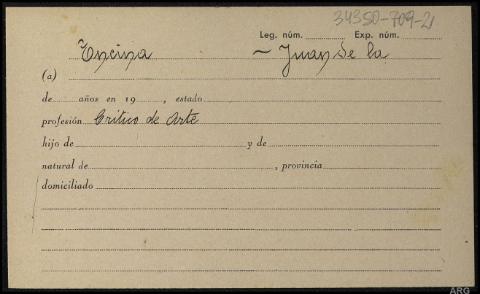 34350-709-21
Leg. núm. Exp. núm.
Encina ~ Juan de la
(a)
de años en 19 , estado
profesión Crítico de Arte
hijo de y de
natural de , provincia
domiciliado
ARG